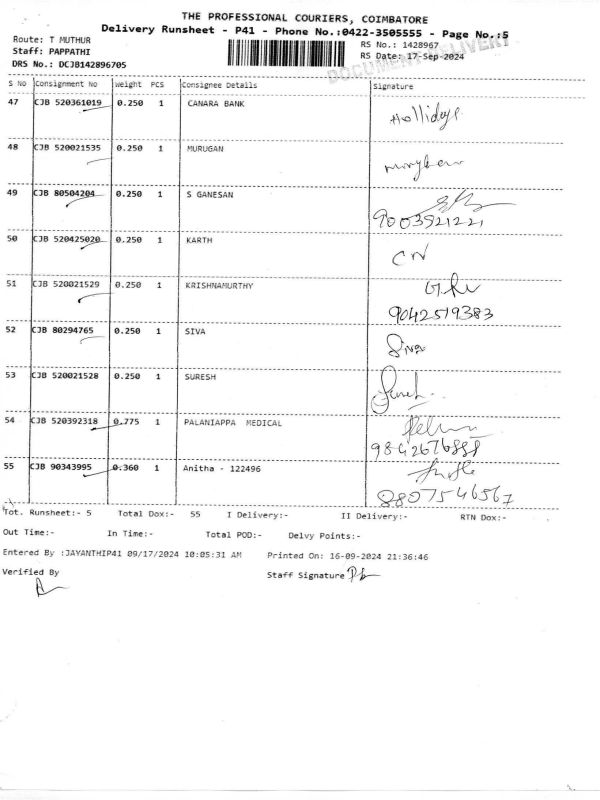 THE PROFESSIONAL COURIERS, COIMBATORE
Delivery Runsheet - P41 - Phone No.:0422-3505555 - Page No.:5
Route: T MUTHUR
RS No.: 1428967
Staff: PAPPATHI
RS Date: 17-Sep-2024
DRS No.: DCJB142896705
DOCUMENT DELIVERY
S No Consignment No Weight PCS Consignee Details Signature
47 CJB 520361019 0.250 1 CANARA BANK
48 CJB 520021535 0.250 1 MURUGAN
49 CJB 80504204 0.250 1 S GANESAN
9003921221
50 CJB 520425020 0.250 1 KARTH
51 CJB 520021529 0.250 1 KRISHNAMURTHY
9042519383
52 CJB 80294765 0.250 1 SIVA Siva
53 CJB 520021528 0.250 1 SURESH
54 CJB 520392318 0.775 1 PALANIAPPA MEDICAL
9842676888
55 CJB 90343995 0.360 1 Anitha - 122496
8807546567
Tot. Runsheet:- 5 Total Dox:- 55 I Delivery:- II Delivery:- RTN Dox:-
Out Time:- In Time:- Total POD:- Delvy Points:-
Entered By :JAYANTHIP41 09/17/2024 10:05:31 AM Printed On: 16-09-2024 21:36:46
Verified By Staff Signature